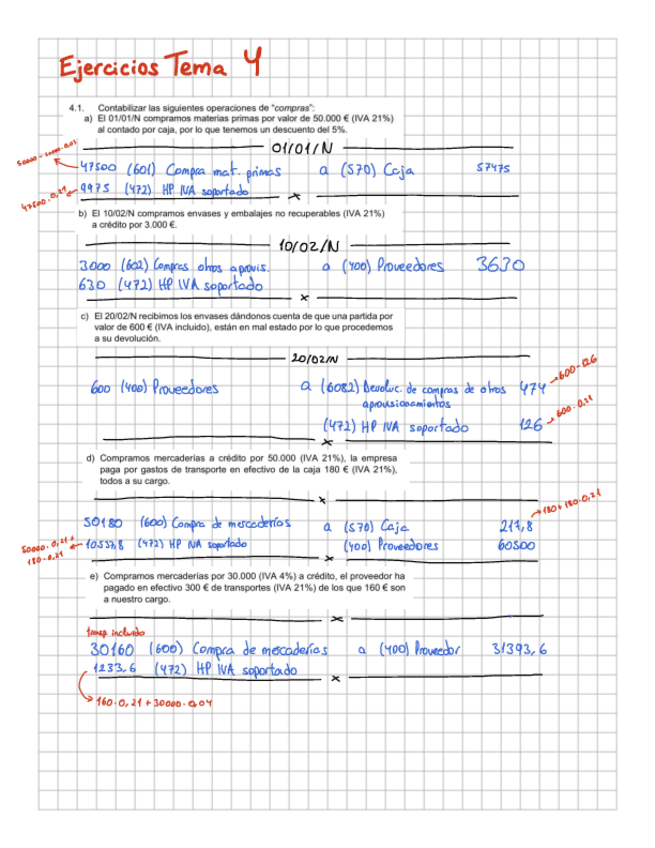 Ejercicios Tema 4
4.1. Contabilizar las siguientes operaciones de "compras":
a) El 01/01/N compramos materias primas por valor de 50.000 € (IVA 21%)
al contado por caja, por lo que tenemos un descuento del 5%.
01/01/N
47500 (601) Compra mat. primas a (570) Caja 57475
9975 (472) HP IVA soportado
47500·0,21
x
b) El 10/02/N compramos envases y embalajes no recuperables (IVA 21%)
a crédito por 3.000 €.
10/02/N
3000 (602) Compras otros aprovis. a (400) Proveedores 3630
630 (472) HP IVA soportado
x
c) El 20/02/N recibimos los envases dándonos cuenta de que una partida por
valor de 600 € (IVA incluido), están en mal estado por lo que procedemos
a su devolución.
20/02/N
600 (400) Proveedores a (6082) Devoluc. de compras de otros 474
600-126
aprovisionamientos
(472) HP IVA soportado 126
600·0,21
x
d) Compramos mercaderías a crédito por 50.000 (IVA 21%), la empresa
paga por gastos de transporte en efectivo de la caja 180 € (IVA 21%),
todos a su cargo.
x
180+180·0,21
50180 (600) Compra de mercaderías a (570) Caja 217,8
50000·0,21+
180·0,21
10537,8 (472) HP IVA soportado (400) Proveedores 60500
x
e) Compramos mercaderías por 30.000 (IVA 4%) a crédito, el proveedor ha
pagado en efectivo 300 € de transportes (IVA 21%) de los que 160 € son
a nuestro cargo.
x
transp incluido
30160 (600) Compra de mercaderías a (400) Proveedor 31393,6
1233,6 (472) HP IVA soportado
x
160·0,21+30000·0,04